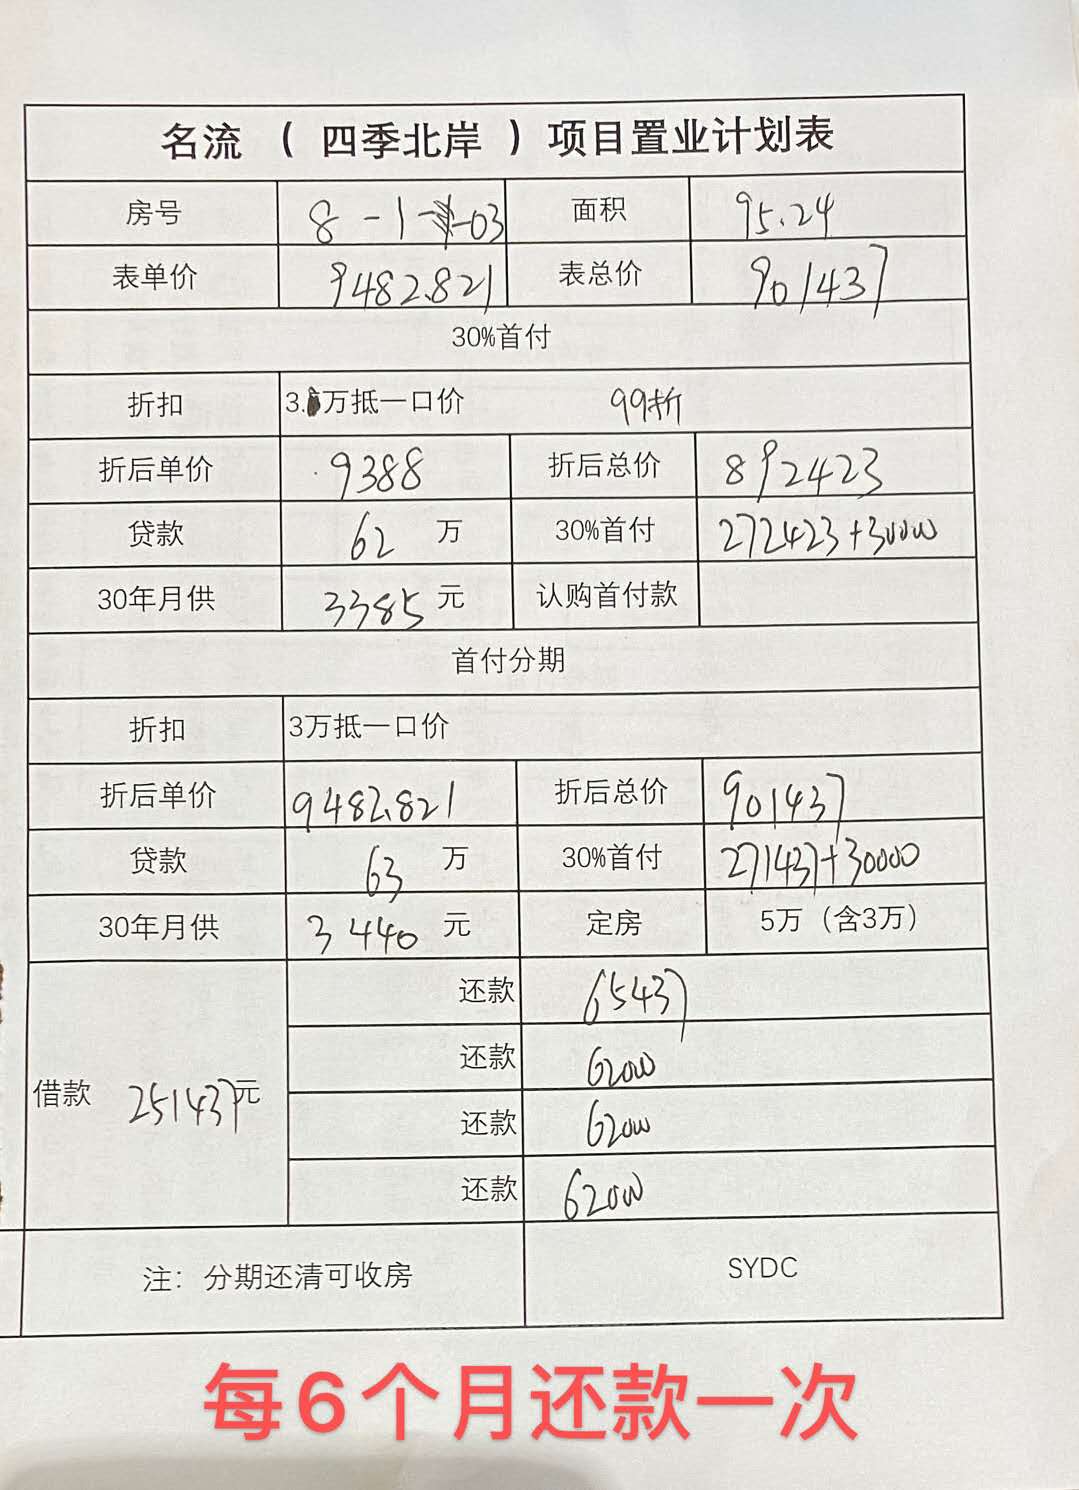 名流 （ 四季北岸 ） 项目置业计划表
房号 8-1- -03 面积 95.24
表单价 9482.821 表总价 901437
30%首付
折扣 3. 万抵一口价 99折
折后单价 9388 折后总价 892423
贷款 62 万 30%首付 272423+30000
30年月供 3385 元 认购首付款
首付分期
折扣 3万抵一口价
折后单价 9482.821 折后总价 901437
贷款 63 万 30%首付 271437+30000
30年月供 3440 元 定房 5万（含3万）
还款 65437
还款 62000
借款 251437元
还款 62000
还款 62000
注：分期还清可收房 SYDC
每6个月还款一次